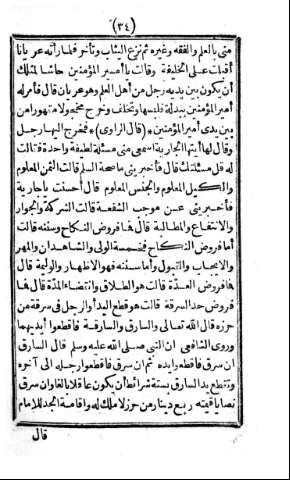 (٣٤)
منى بالعلم والفقه وغيره ثم نزع الثياب وتأخر فلما رأته عريانا
أقبلت على الخليفة وقالت يا أمير المؤمنين حاشا لمثلك
أن يكون بين يديه رجل من أهل العلم وهو عريان قال فأمر له
أمير المؤمنين ببدلة فلبسها وتخلف وخرج مخجولا مقهورا من
بين يدى أمير المؤمنين * (قال الراوى) * فخرج اليها رجل
وقال لها أيتها الجارية اسمعى منى مسئلة لطيفة واحدة قالت
له قل مسئلتك قال فأخبرينى ما صحة السلم قالت الثمن المعلوم
والكيل المعلوم والجنس المعلوم قال أحسنت يا جارية
فأخبرينى عن موجب الشفعة قالت الشركة والجوار
والانتفاع والمطالبة قال فما فروض النكاح وسننه قالت
أما فروض النكاح فخمسة الولى والشاهدان والمهر
والايجاب والقبول وأما سننه فهو الاظهار والوليمة قال
فما فروض العدة قالت هو الطلاق وانقضاء المدة قال فما
فروض حد السرقة قالت هو قطع اليد أو الرجل فى سرقة من
حرزه قال الله تعالى والسارق والسارقة فاقطعوا أيديهما
وروى الشافعى ان النبى صلى الله عليه وسلم قال السارق
ان سرق فاقطعوا يده ثم ان سرق فاقطعوا رجله الى آخره
وتقطع يد السارق بستة شرائط أن يكون عاقلا بالغا وان سرق
نصابا قيمته ربع دينار من حرز لا ملك له واقامة الحد للامام
قال